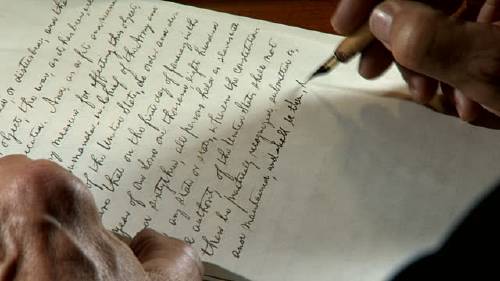 or disturbed, and
object, the war, as it has been,
And, as a fit
measure for effecting this object,
of the Army and
of the United States, do order and de-
that on the first day of January in the
year of our Lord one thousand eight hundred
sixtythree, all persons held as slaves
any state or states, wherein the constitution
authority of the United States shall not
then be practically recognized, submitted to,
and maintained, shall then,